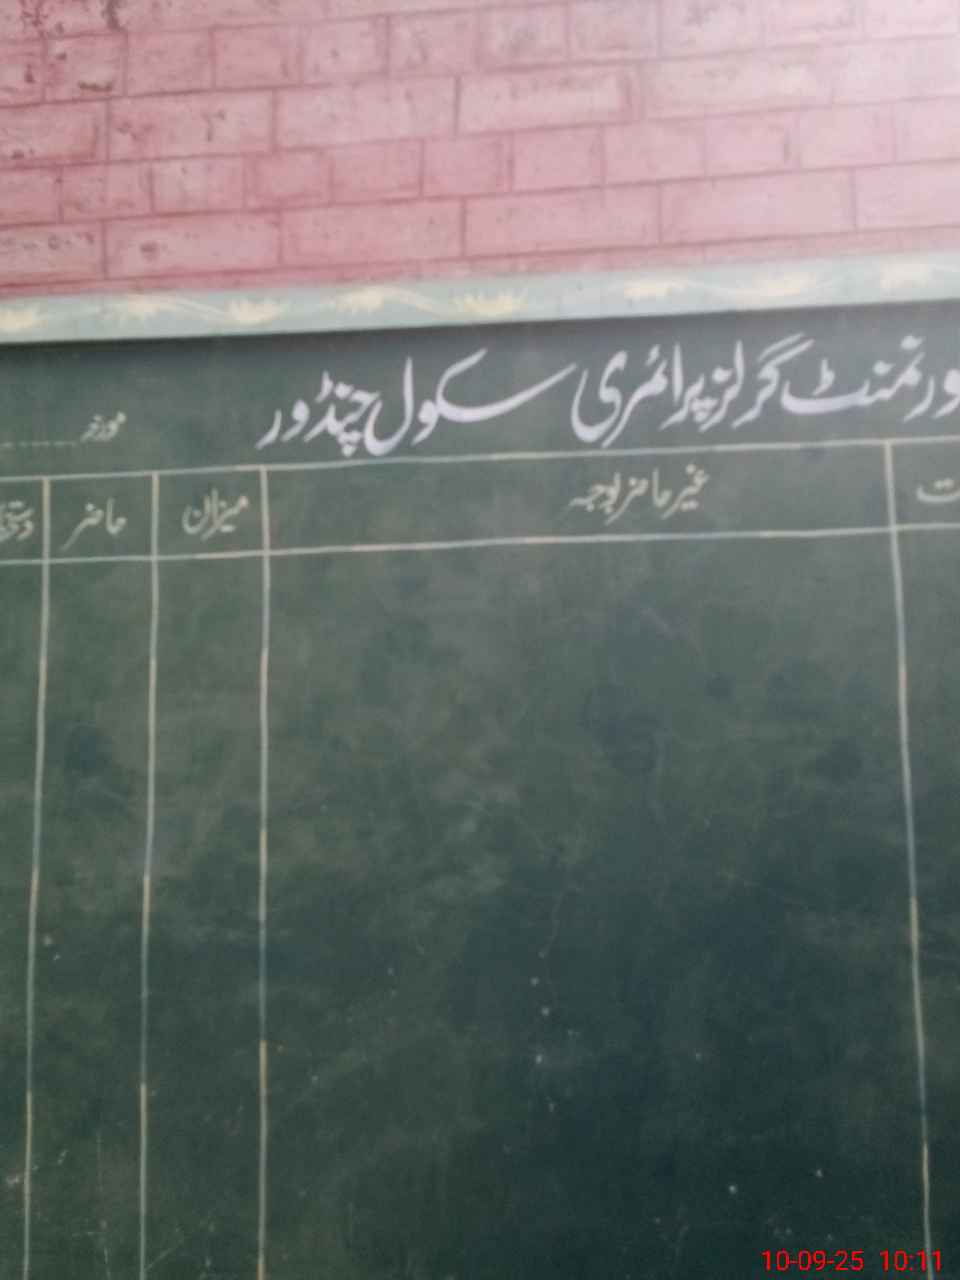 ورنمنٹ گرلز پرائمری سکول چنڈور
مورخہ
غیر حاضر بوجہ میزان حاضر
10-09-25 10:11